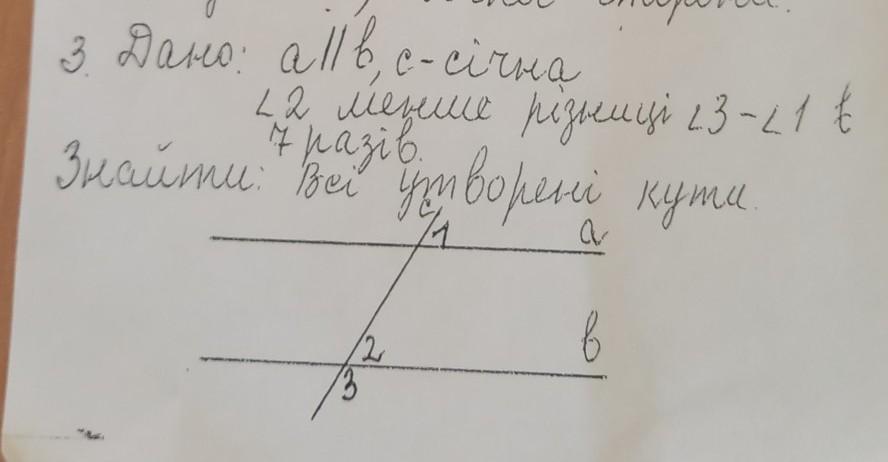 3. Дано: a||b, c-січна
∠2 менше різниці ∠3-∠1 в
7 разів.
Знайти: Всі утворені кути.
c
1
a
2
b
3